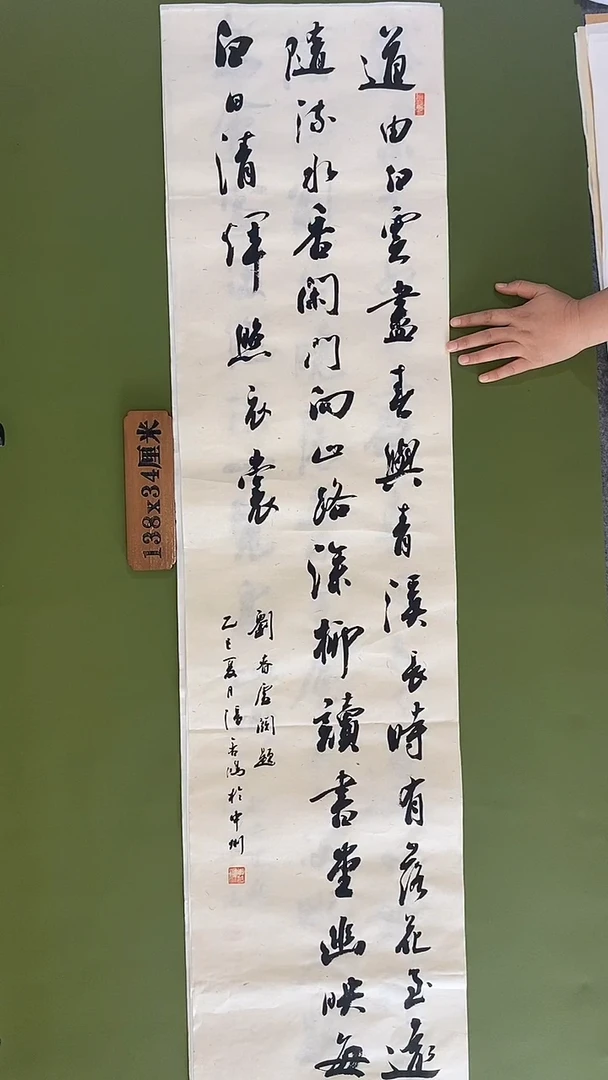 道由白雲盡春與青溪長時有落花至遠
隨流水香閑門向山路深柳讀書堂幽映每
白日清輝照衣裳
劉眘虛闕題
乙巳夏月於中州
138x34厘米